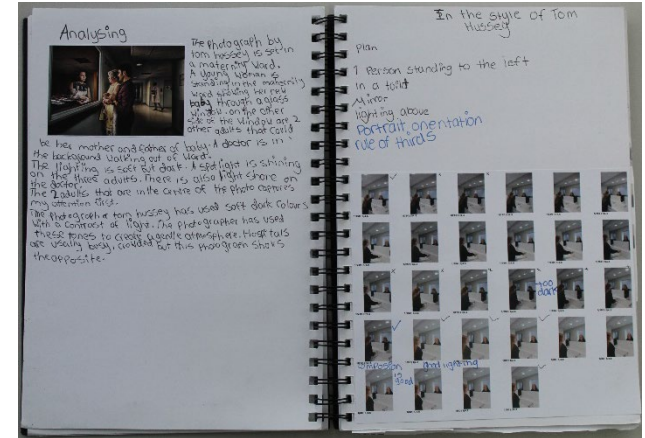 Analysing
The photograph by
tom hussey is set in
a maternity ward.
A young woman is
standing in the maternity
ward
her new
baby through a glass
window. on the other
side of the window are 2
other adults that could
be her mother and father of baby. A doctor is in
the background walking out of ward.
The lighting is soft but dark. A spotlight is shining
on the three adults. There is also light shore on
the doctor.
The 2 adults that are in the centre of the photo captures
my attention first.
The photographer tom hussey has used soft dark colours
with a contrast of light. The photographer has used
these tones to create a gentle atmosphere. Hospitals
are usually busy, crowded but this photograph shows
the opposite.
In the style of Tom
Hussey
plan
1 Person standing to the left
in a toilet
Mirror
lighting above
Portrait orientation
rule of thirds
too
dark
good lighting
good